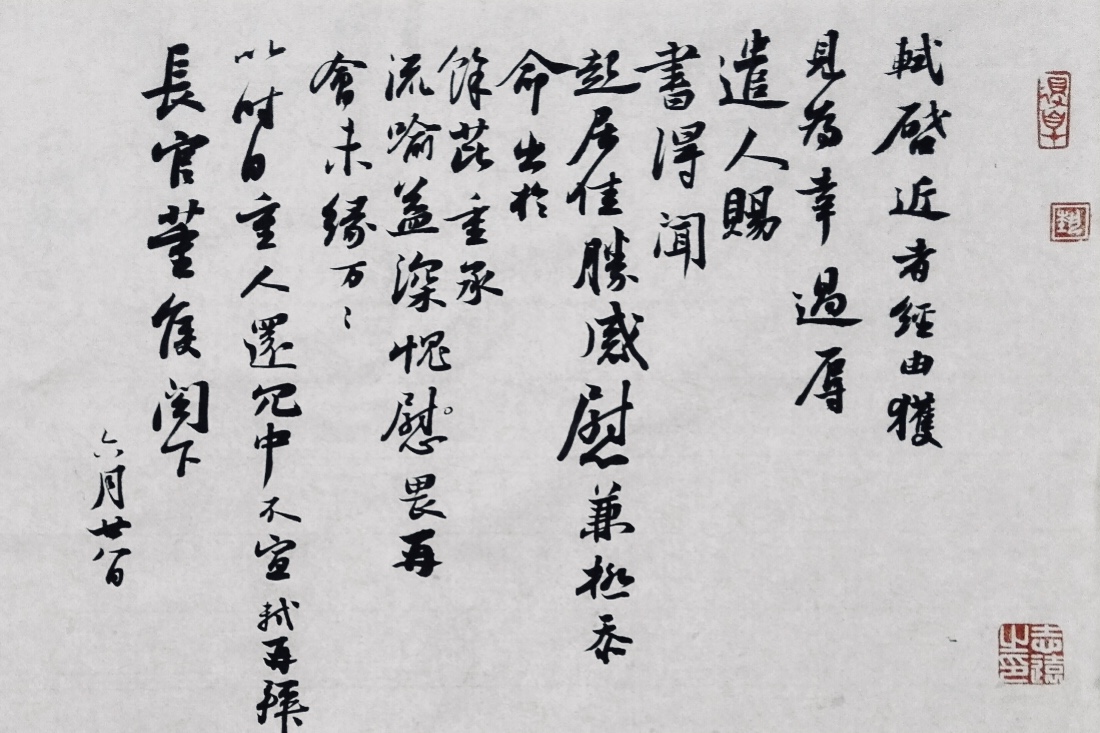 軾啓近者經由獲
見為幸過辱
遣人賜
書得聞
起居佳勝感慰兼極忝
命出於
餘芘重承
流喻益深愧慰畏再
會未緣万〻
以時自重人還冗中不宣軾再拜
長官董侯閣下
六月廿八日
志遠之印